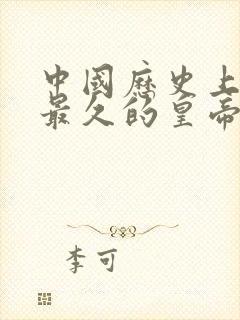 中國歷史上
最久的皇帝
李可